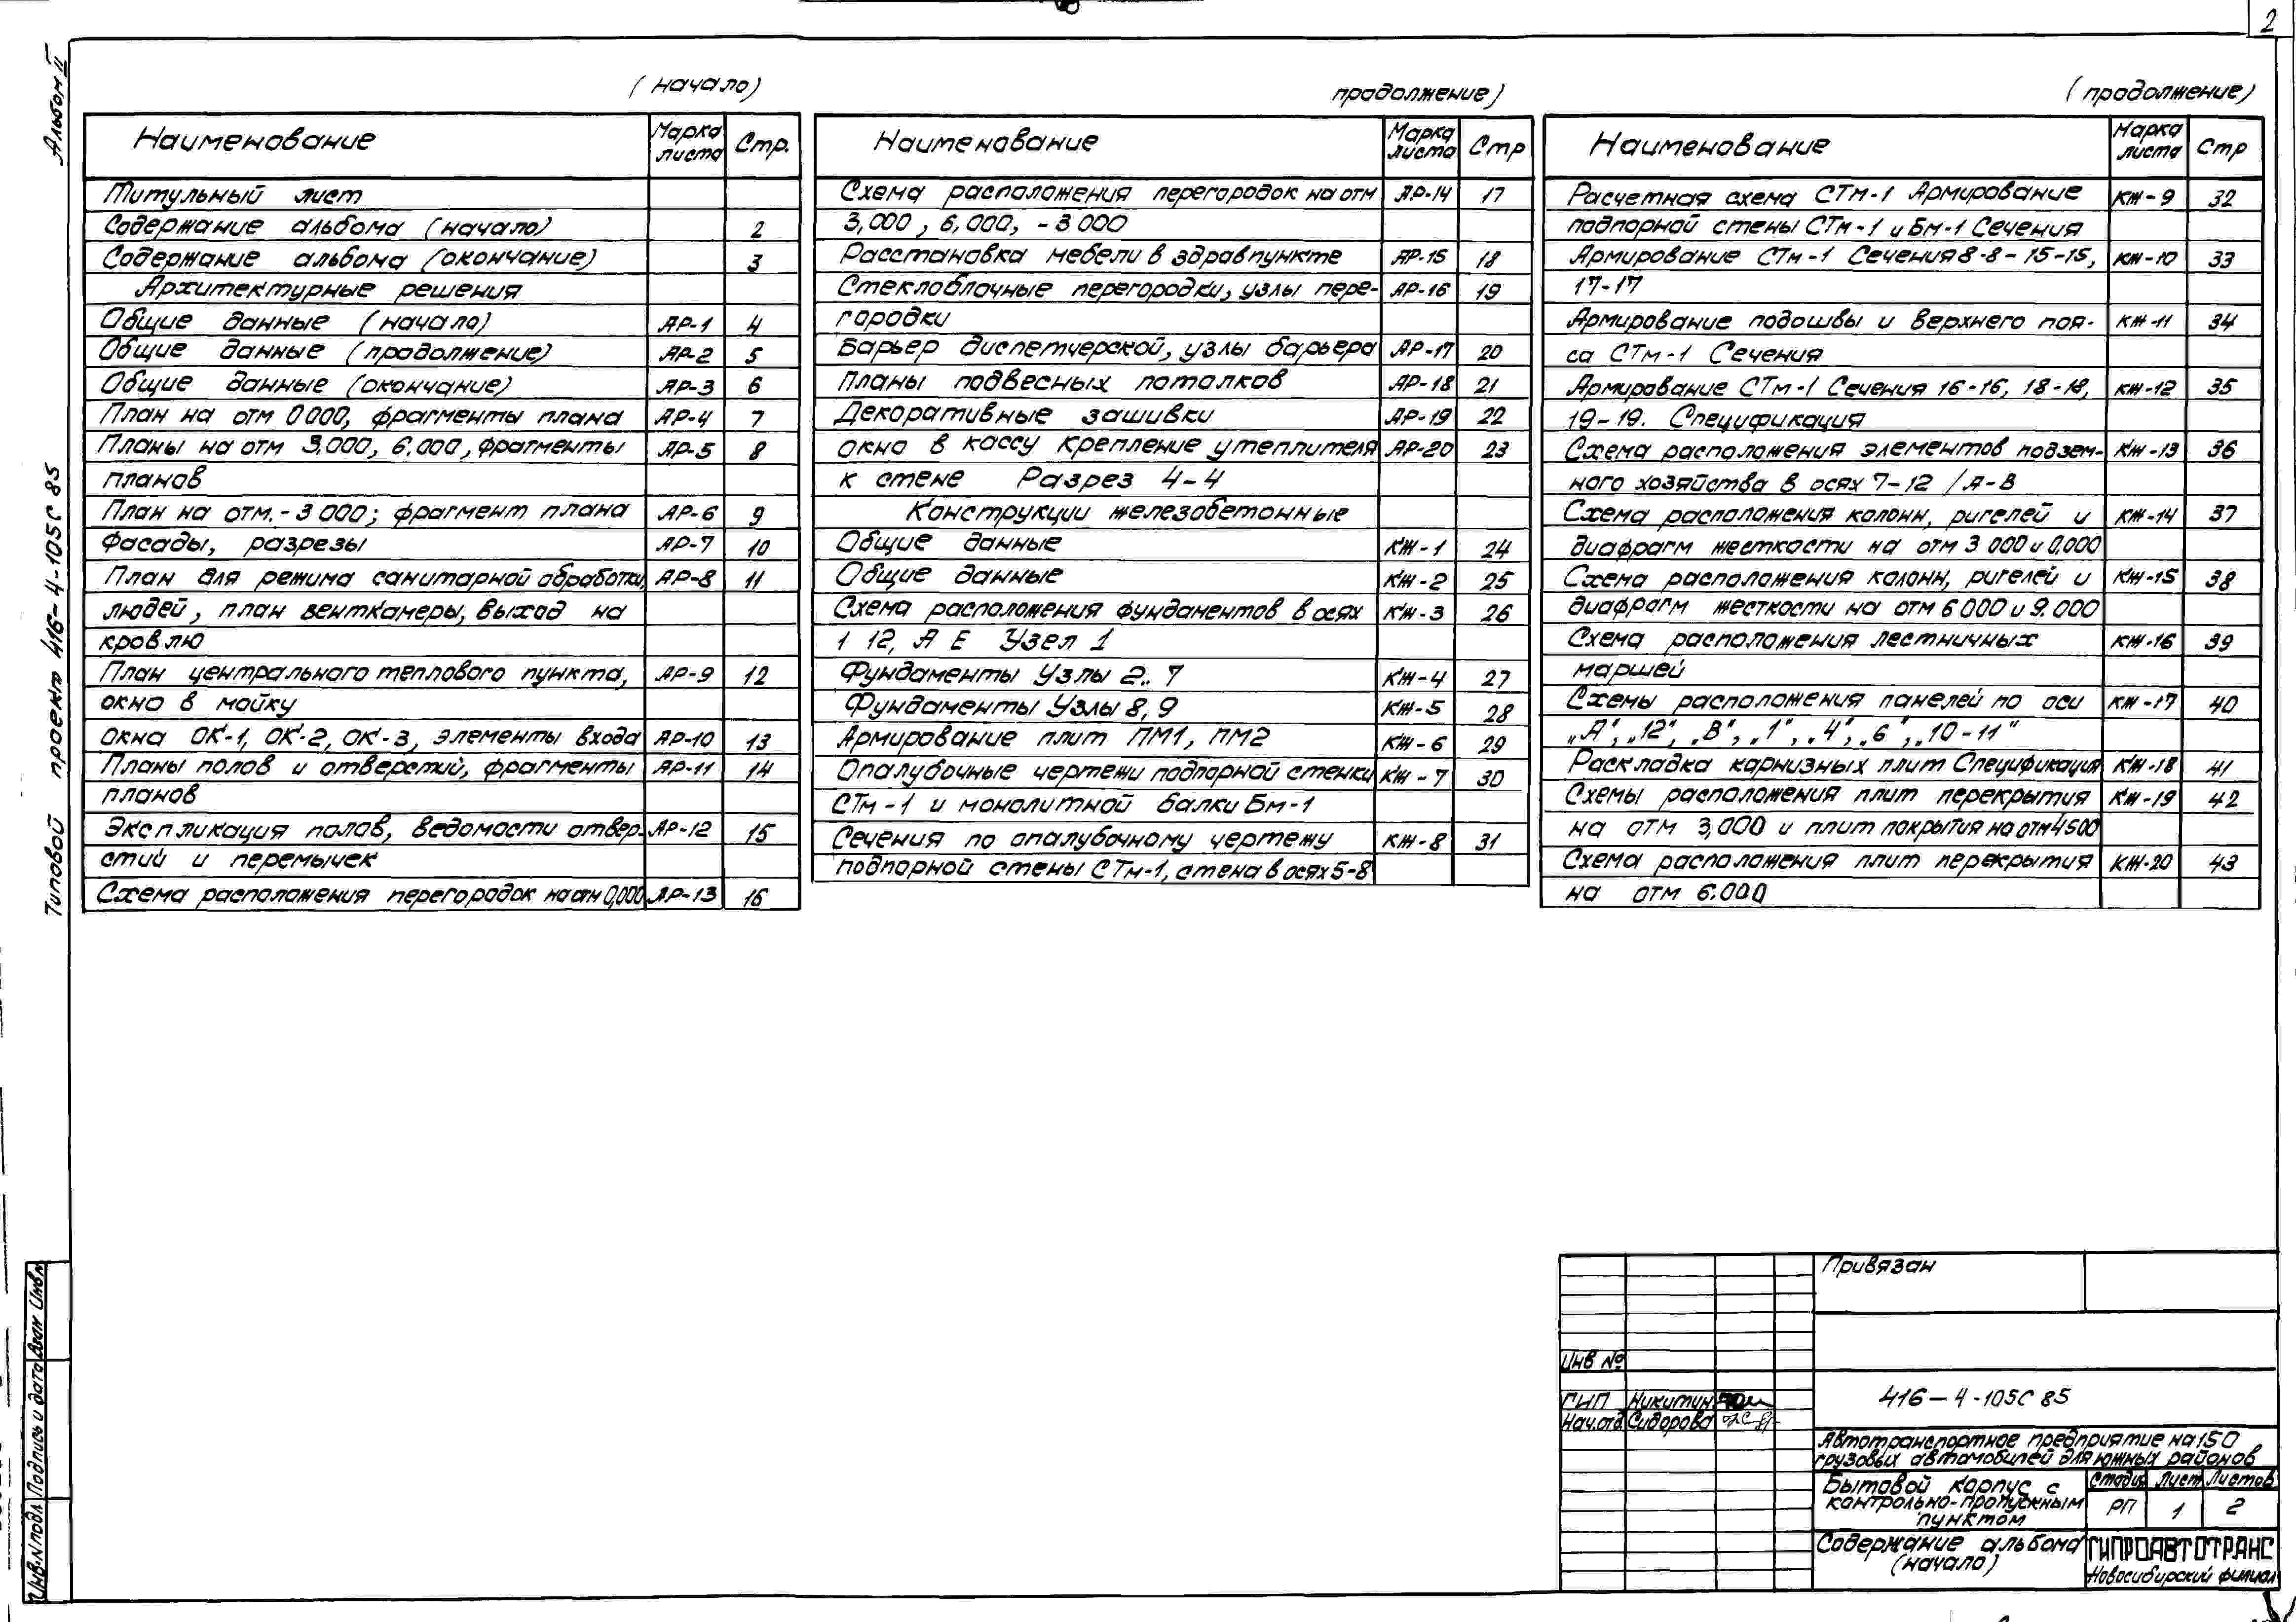 2
Альбом II
Типовой проект 416-4-105С 85
(начало)
Наименование Марка листа Стр.
Титульный лист
Содержание альбома (начало) 2
Содержание альбома (окончание) 3
Архитектурные решения
Общие данные (начало) АР-1 4
Общие данные (продолжение) АР-2 5
Общие данные (окончание) АР-3 6
План на отм 0 000, фрагменты плана АР-4 7
Планы на отм 3,000, 6.000, фрагменты АР-5 8
планов
План на отм. - 3 000; фрагмент плана АР-6 9
Фасады, разрезы АР-7 10
План для режима санитарной обработки АР-8 11
людей, план венткамеры, выход на
кровлю
План центрального теплового пункта, АР-9 12
окно в мойку
Окна ОК-1, ОК-2, ОК-3, элементы входа АР-10 13
Планы полов и отверстий, фрагменты АР-11 14
планов
Экспликация полов, ведомости отвер- АР-12 15
стий и перемычек
Схема расположения перегородок на отм 0,000 АР-13 16
продолжение)
Наименование Марка листа Стр
Схема расположения перегородок на отм АР-14 17
3,000, 6,000, - 3 000
Расстановка мебели в здравпункте АР-15 18
Стеклоблочные перегородки, узлы пере- АР-16 19
городки
Барьер диспетчерской, узлы барьера АР-17 20
Планы подвесных потолков АР-18 21
Декоративные зашивки АР-19 22
Окно в кассу крепление утеплителя АР-20 23
к стене Разрез 4-4
Конструкции железобетонные
Общие данные КЖ-1 24
Общие данные КЖ-2 25
Схема расположения фундаментов в осях КЖ-3 26
1 12, А Е Узел 1
Фундаменты Узлы 2.. 7 КЖ-4 27
Фундаменты Узлы 8, 9 КЖ-5 28
Армирование плит ПМ1, ПМ2 КЖ-6 29
Опалубочные чертежи подпорной стенки КЖ-7 30
СТм-1 и монолитной балки Бм-1
Сечения по опалубочному чертежу КЖ-8 31
подпорной стены СТм-1, стена в осях 5-8
(продолжение)
Наименование Марка листа Стр
Расчетная схема СТм-1 Армирование КЖ-9 32
подпорной стены СТм-1 и Бм-1 Сечения
Армирование СТм-1 Сечения 8-8 - 15-15, КЖ-10 33
17-17
Армирование подошвы и верхнего поя- КЖ-11 34
са СТм-1 Сечения
Армирование СТм-1 Сечения 16-16, 18-18, КЖ-12 35
19-19. Спецификация
Схема расположения элементов подзем- КЖ-13 36
ного хозяйства в осях 7-12 /А-В
Схема расположения колонн, ригелей и КЖ-14 37
диафрагм жесткости на отм 3 000 и 0,000
Схема расположения колонн, ригелей и КЖ-15 38
диафрагм жесткости на отм 6 000 и 9.000
Схема расположения лестничных КЖ-16 39
маршей
Схемы расположения панелей по оси КЖ-17 40
„А", „12", „В", „1", „4", „6", „10-11"
Раскладка карнизных плит Спецификация КЖ-18 41
Схемы расположения плит перекрытия КЖ-19 42
на отм 3,000 и плит покрытия на отм 4 500
Схема расположения плит перекрытия КЖ-20 43
на отм 6.000
Привязан
Инв №
ГИП Никитин
Нач.отд Сидорова
416-4-105С 85
Автотранспортное предприятие на 150
грузовых автомобилей для южных районов
Бытовой корпус с
контрольно-пропускным
пунктом
Стадия Лист Листов
РП 1 2
Содержание альбома
(начало)
ГИПРОАВТОТРАНС
Новосибирский филиал
Инв.N подл Подпись и дата Взам Инв N